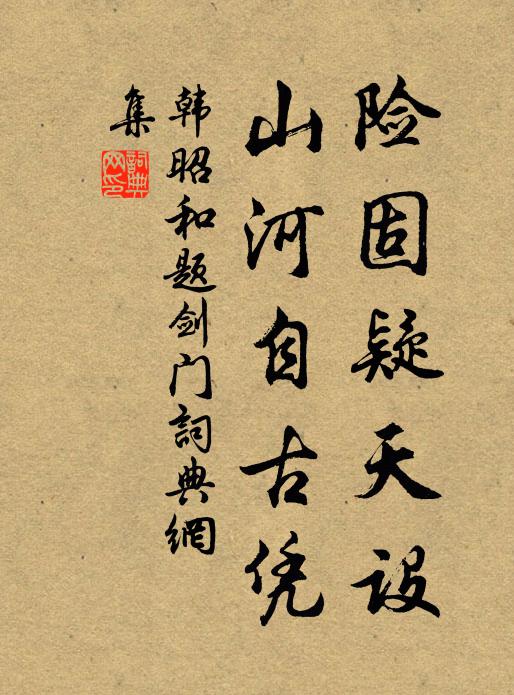 险固疑天设
山河自古凭
韩昭和题剑门詞典網
集
詞典
网印